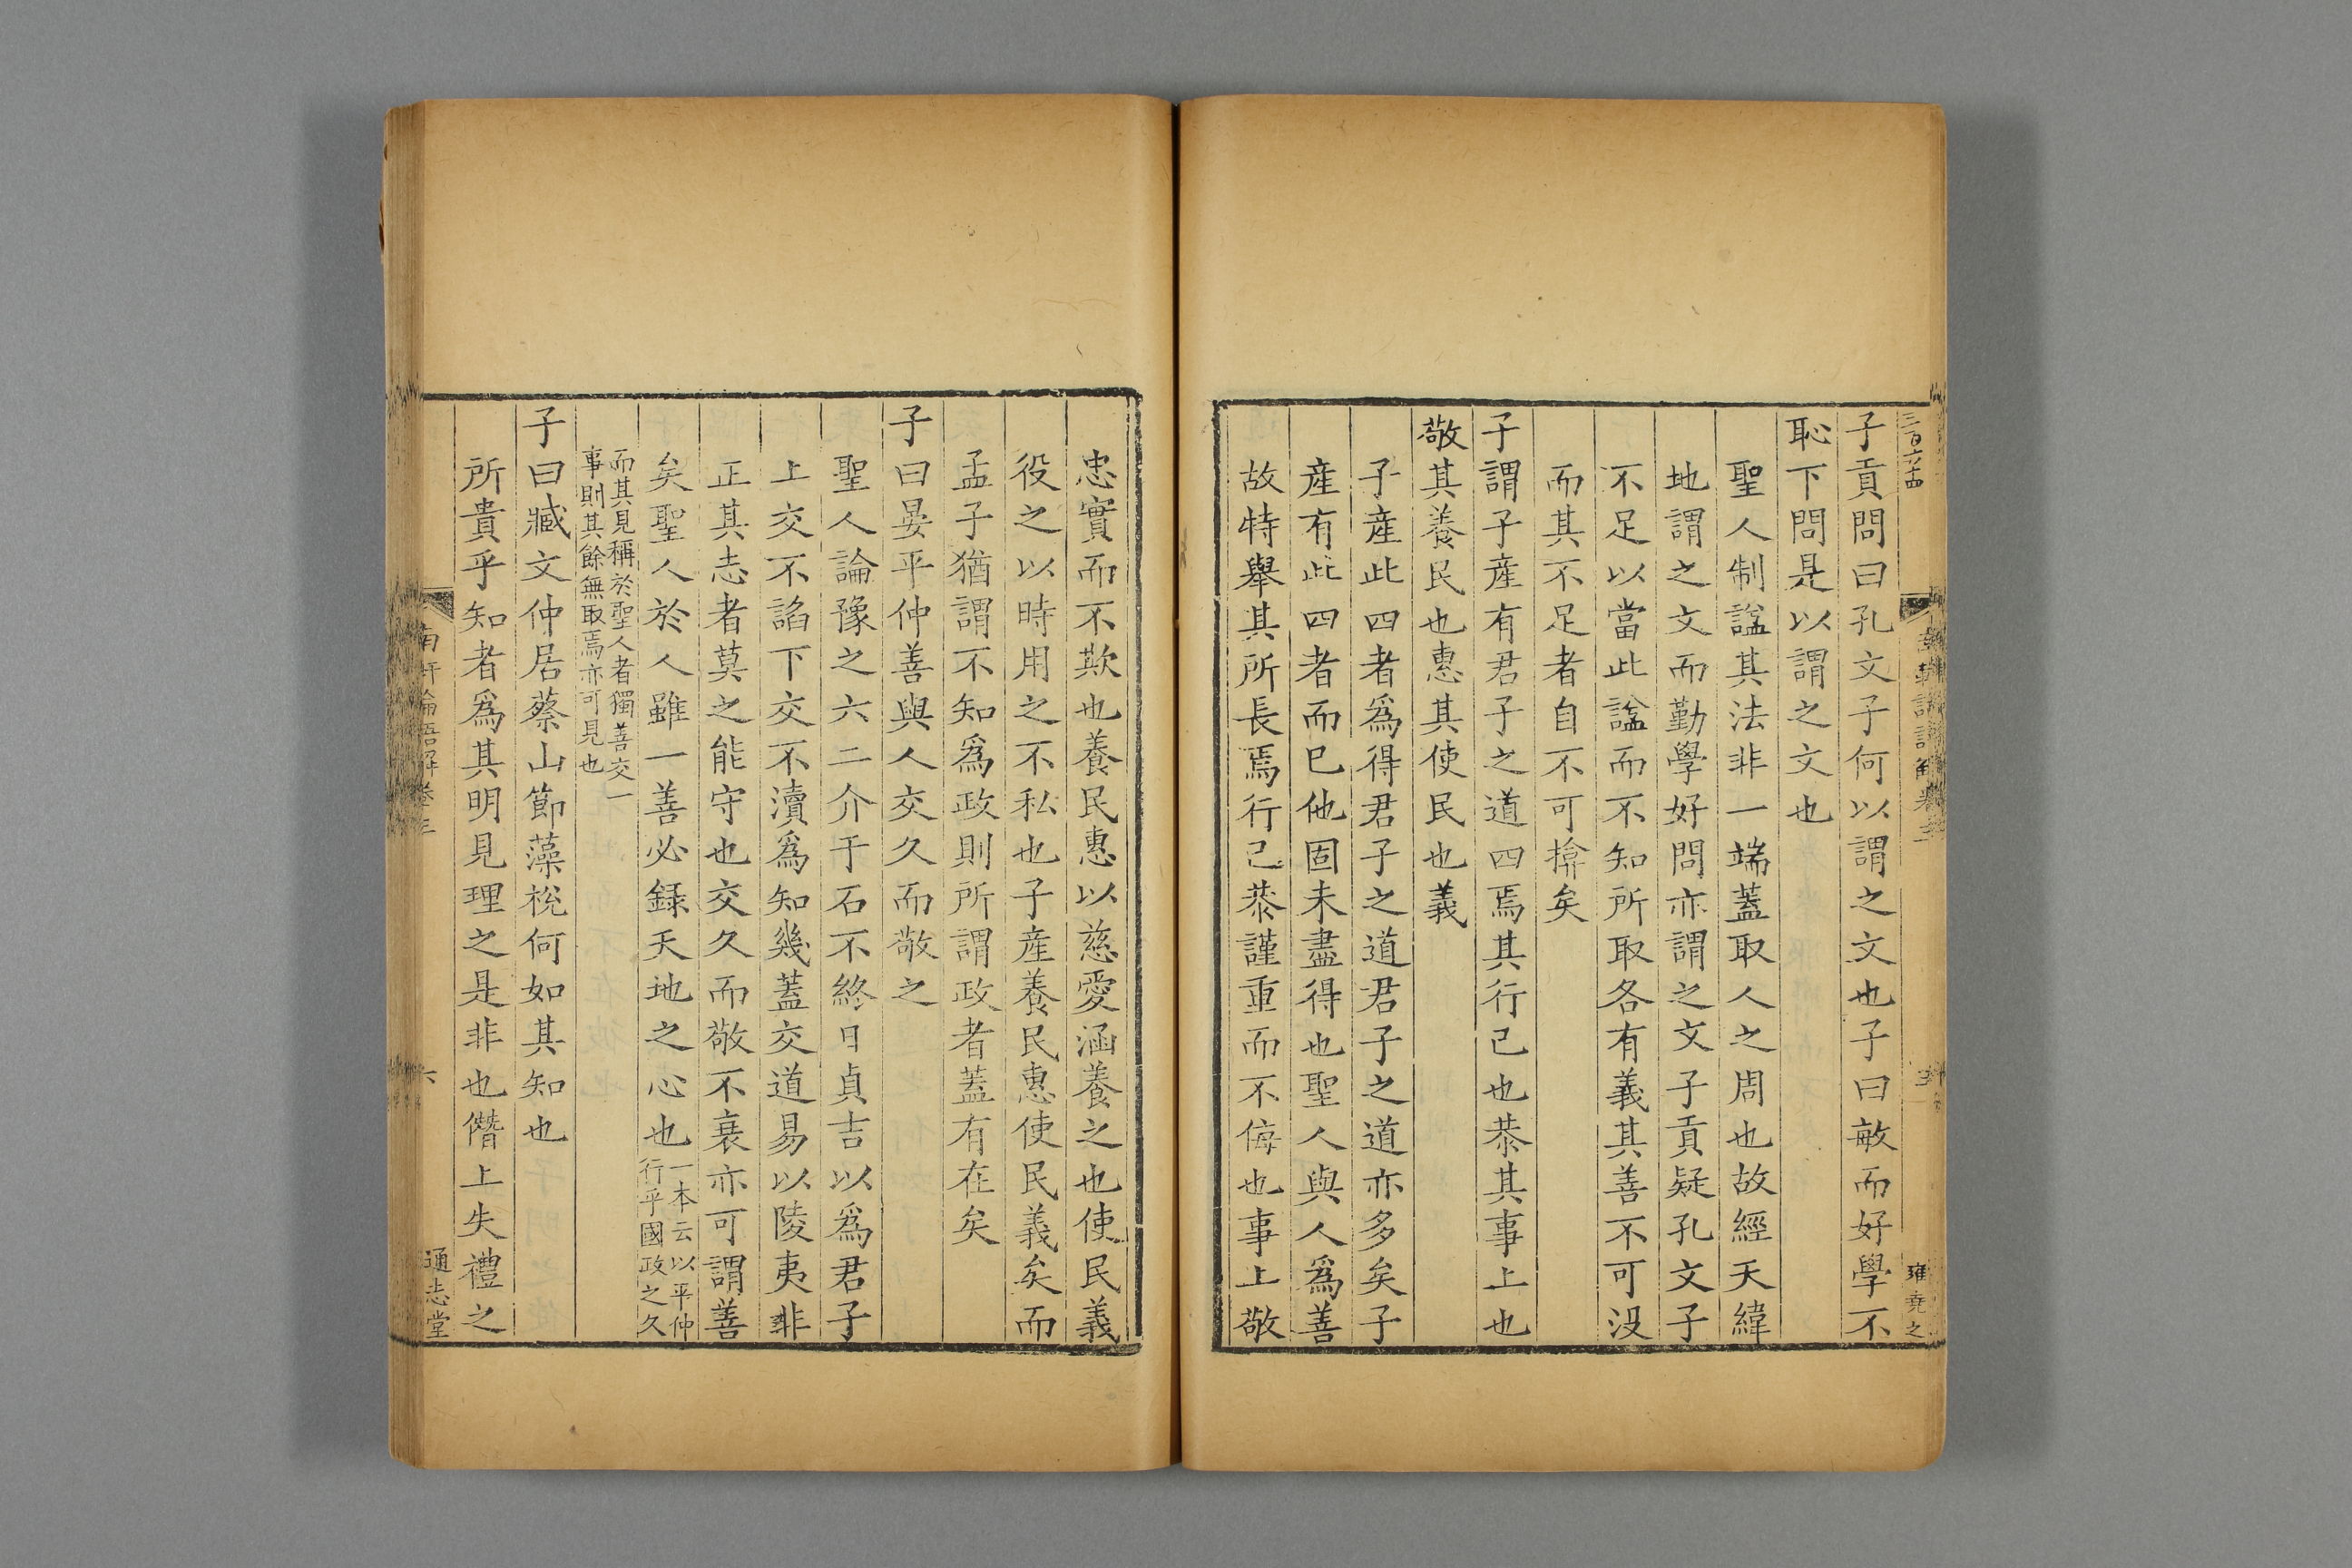 三百六十四
子貢問曰孔文子何以謂之文也子曰敏而好學不
恥下問是以謂之文也
聖人制諡其法非一端蓋取人之周也故經天緯
地謂之文而勤學好問亦謂之文子貢疑孔文子
不足以當此諡而不知所取各有義其善不可没
而其不足者自不可揜矣
子謂子產有君子之道四焉其行己也恭其事上也
敬其養民也惠其使民也義
子產此四者爲得君子之道君子之道亦多矣子
產有此四者而已他固未盡得也聖人與人爲善
故特舉其所長焉行己恭謹重而不侮也事上敬
忠實而不欺也養民惠以慈愛涵養之也使民義
役之以時用之不私也子產養民惠使民義矣而
孟子猶謂不知爲政則所謂政者蓋有在矣
子曰晏平仲善與人交久而敬之
聖人論豫之六二介于石不終日貞吉以爲君子
上交不諂下交不瀆爲知幾蓋交道易以陵夷非
正其志者莫之能守也交久而敬不衰亦可謂善
矣聖人於人雖一善必録天地之心也一本云以平仲
行乎國政之久
而其見稱於聖人者獨善交一
事則其餘無取焉亦可見也
子曰臧文仲居蔡山節藻梲何如其知也
所貴乎知者爲其明見理之是非也僭上失禮之
南軒論語解卷三
六
通志堂